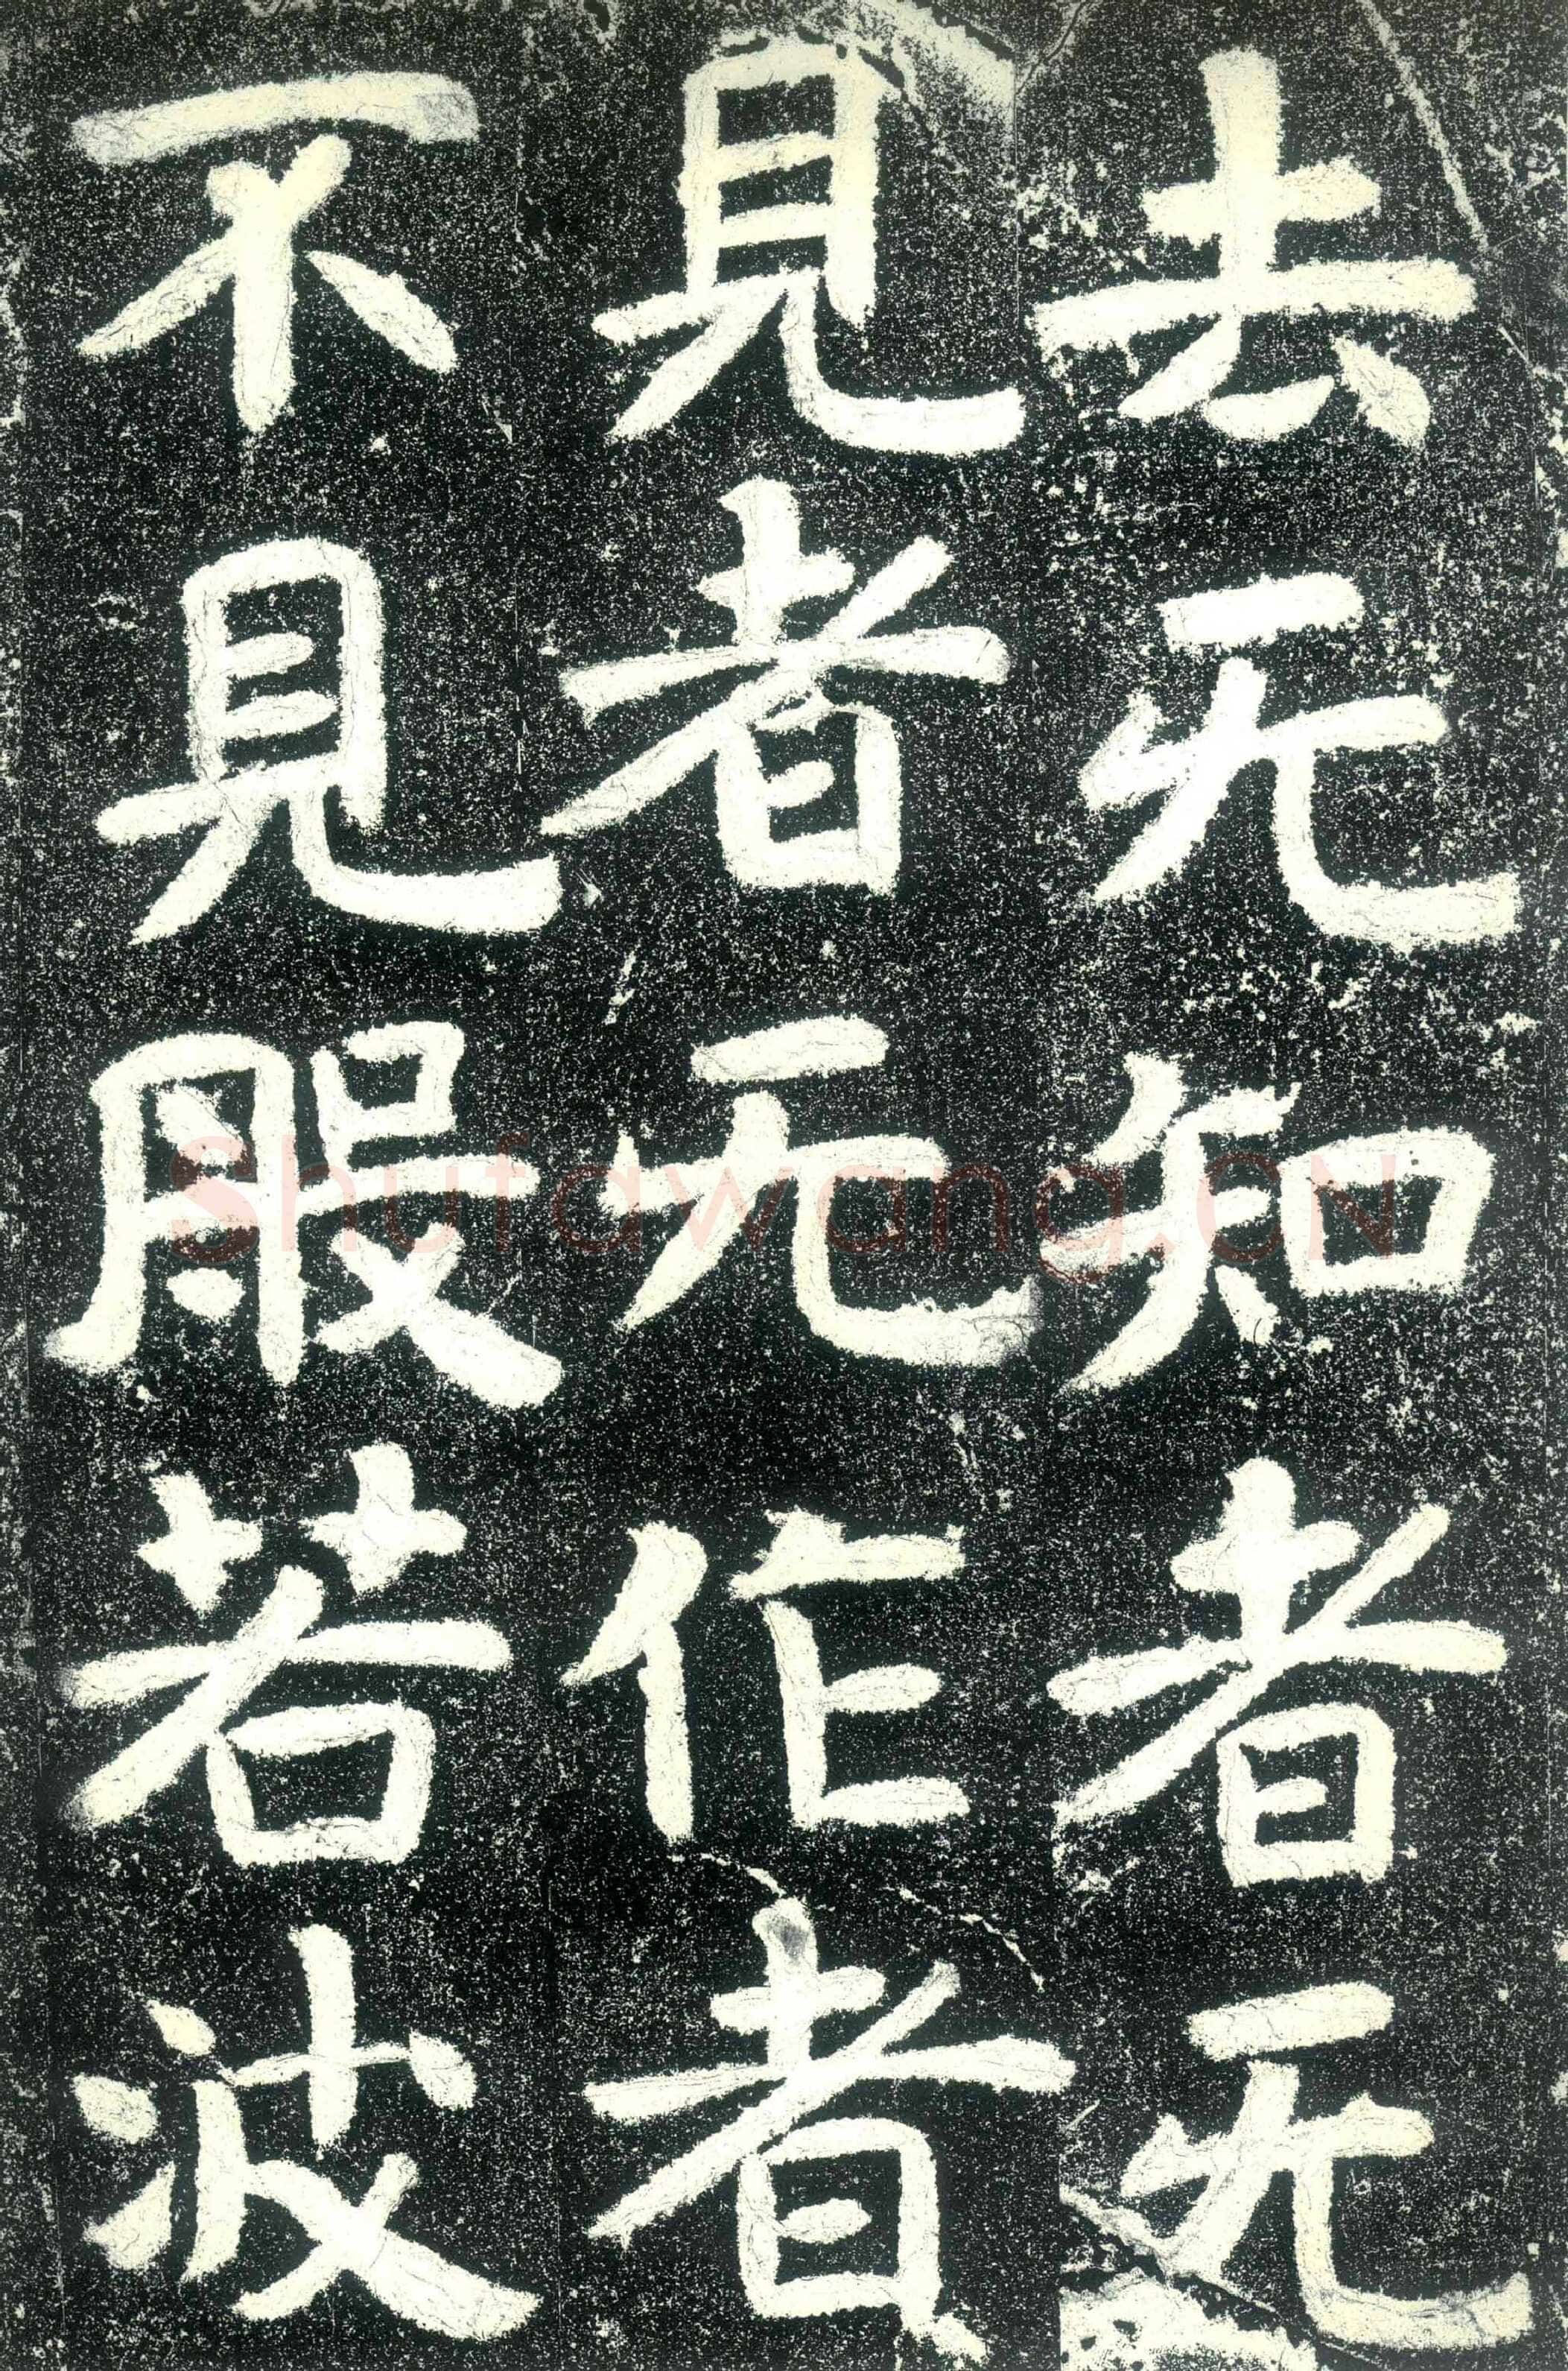 去无知者无
見者无作者
不見般若波
Shufawang.CN